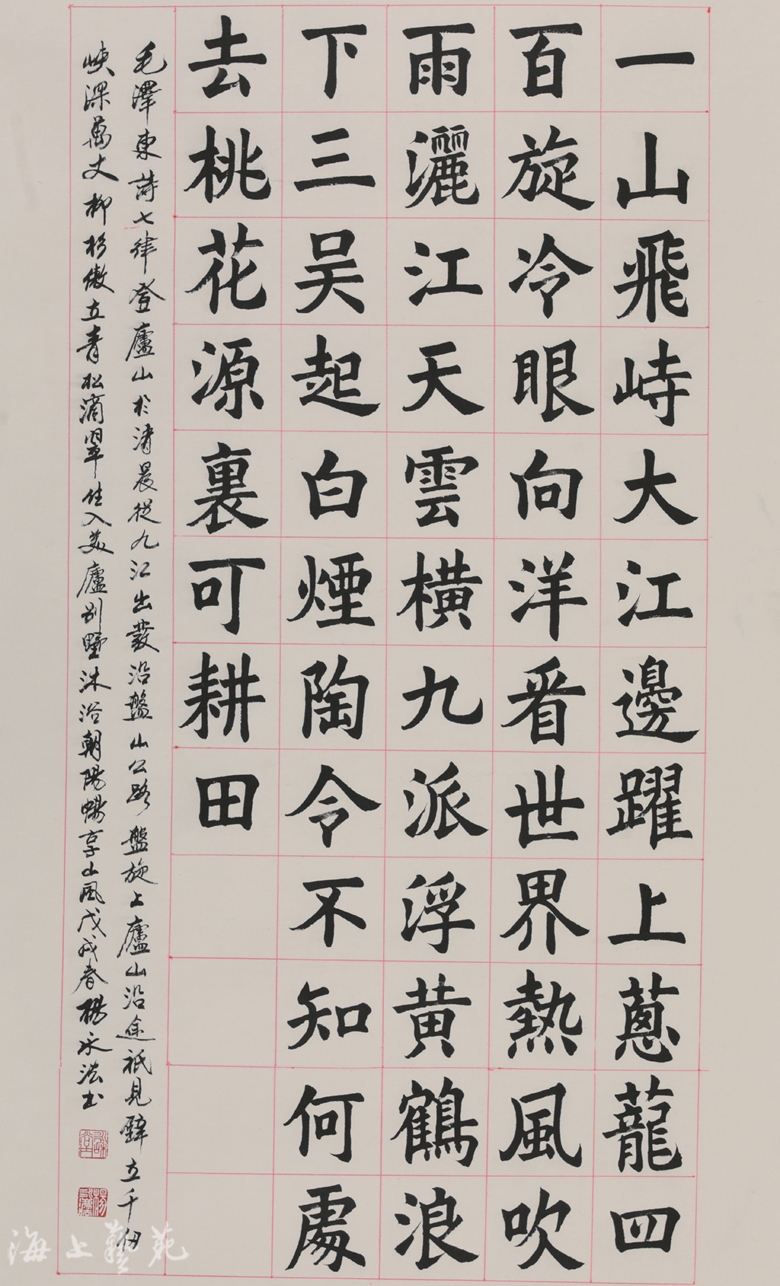 一山飛峙大江邊躍上蔥蘢四
百旋冷眼向洋看世界熱風吹
雨灑江天雲橫九派浮黃鶴浪
下三吴起白煙陶令不知何處
去桃花源裏可耕田
毛澤東詩七律登廬山於清晨從九江出發沿盤山公路盤旋上廬山沿途祇見壁立千仞
峽深萬丈柳杉傲立青松滴翠住入美廬別墅沐浴朝陽暢享山風戊戌春楊永法书
海上藝苑